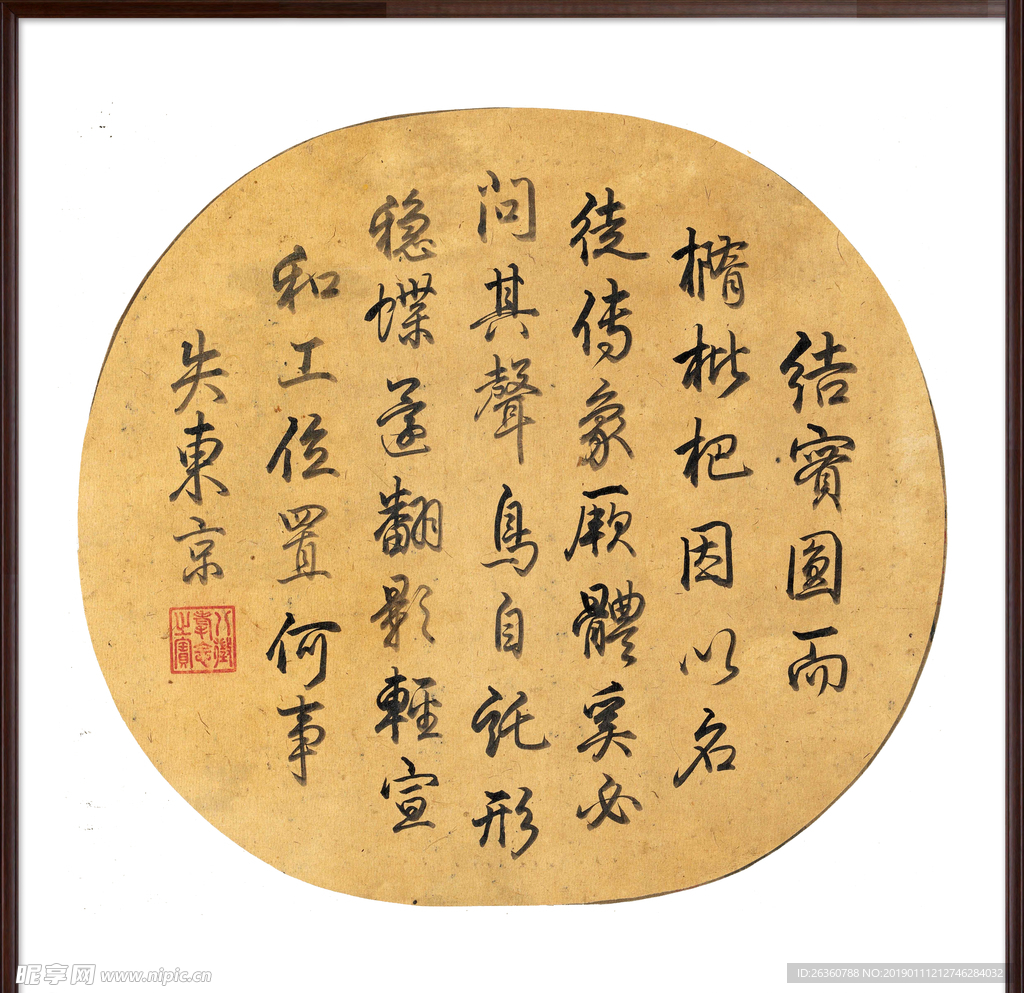 結實圓而
橢枇杷因以名
徒傳象厥體奚必
問其聲鳥自託形
穏蝶還翻影輕宣
和工位置何事
失東京
八徵耄念之寶
昵享网 www.nipic.cn
ID:26360788 NO:20190111212746284032